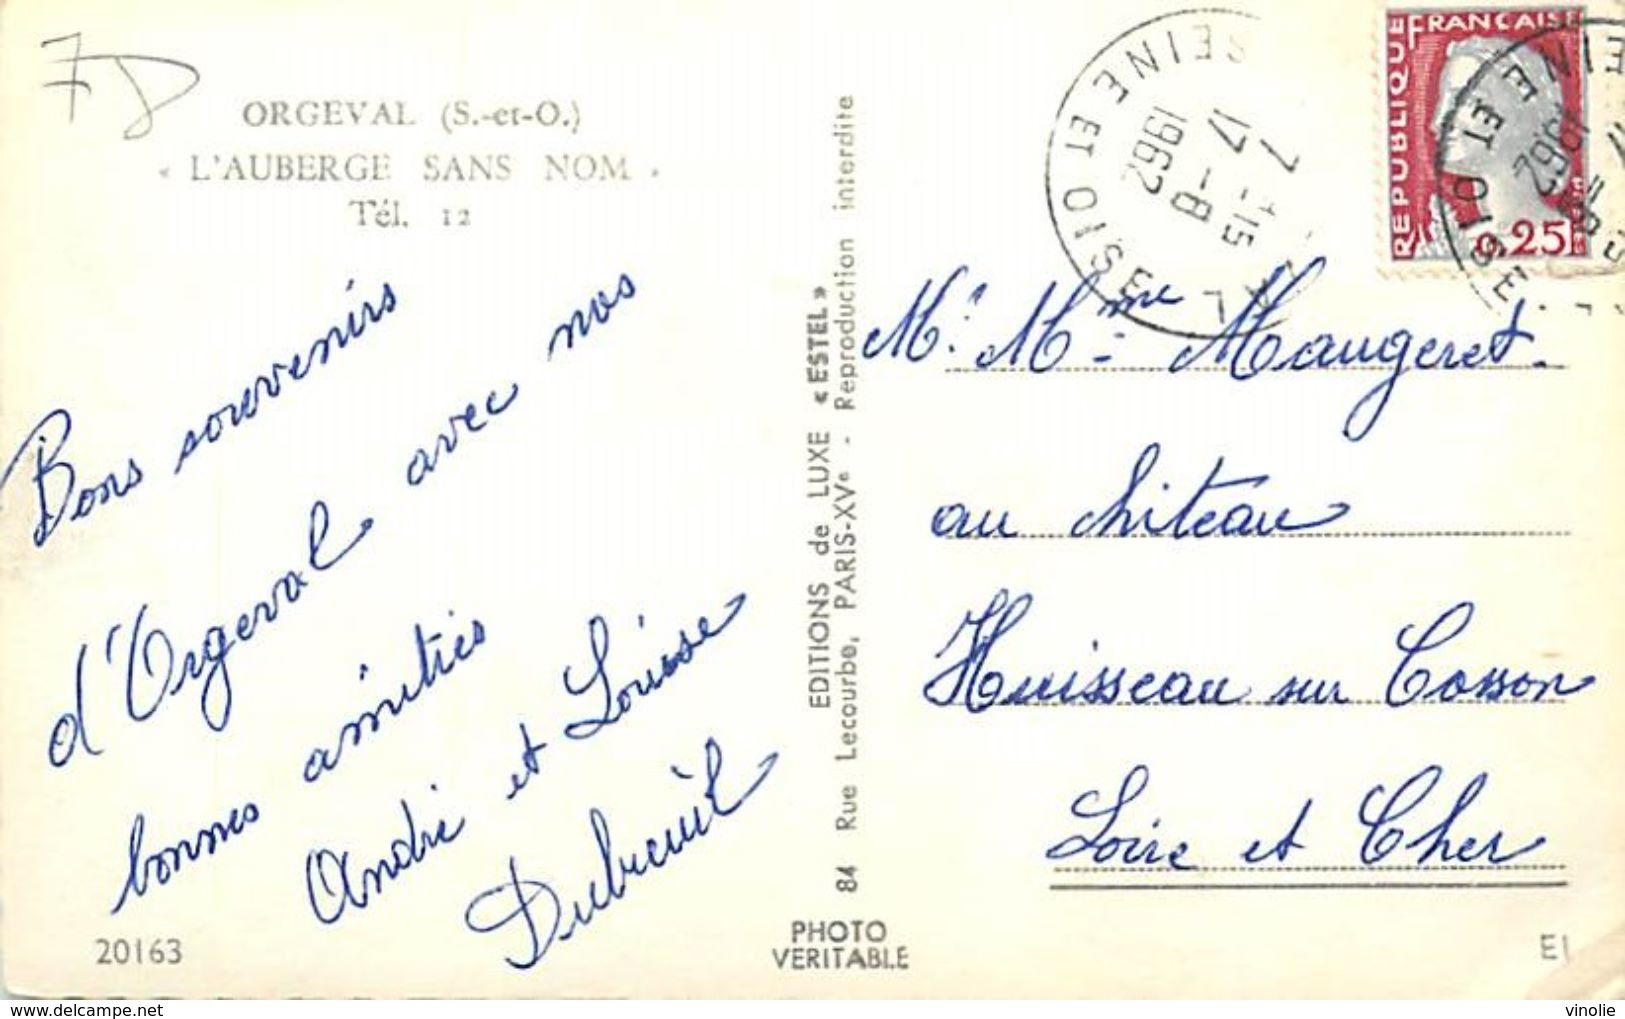 7D
ORGEVAL (S.-et-O.)
« L'AUBERGE SANS NOM »
Tél. 12
Bons souvenirs
d'Orgeval avec nos
bonnes amitiés
André et Louise
Dubreuil
20163
EDITIONS de LUXE « ESTEL »
84 Rue Lecourbe, PARIS-XVe - Reproduction interdite
PHOTO
VERITABLE
SEINE ET OISE
7 -15
17 - 8
1962
REPUBLIQUE FRANÇAISE
0,25
SEINE ET OISE
1962
Mr. Mme Maugeret.
au château
Huisseau sur Cosson
Loire et Cher
EI
vinolie
www.delcampe.net